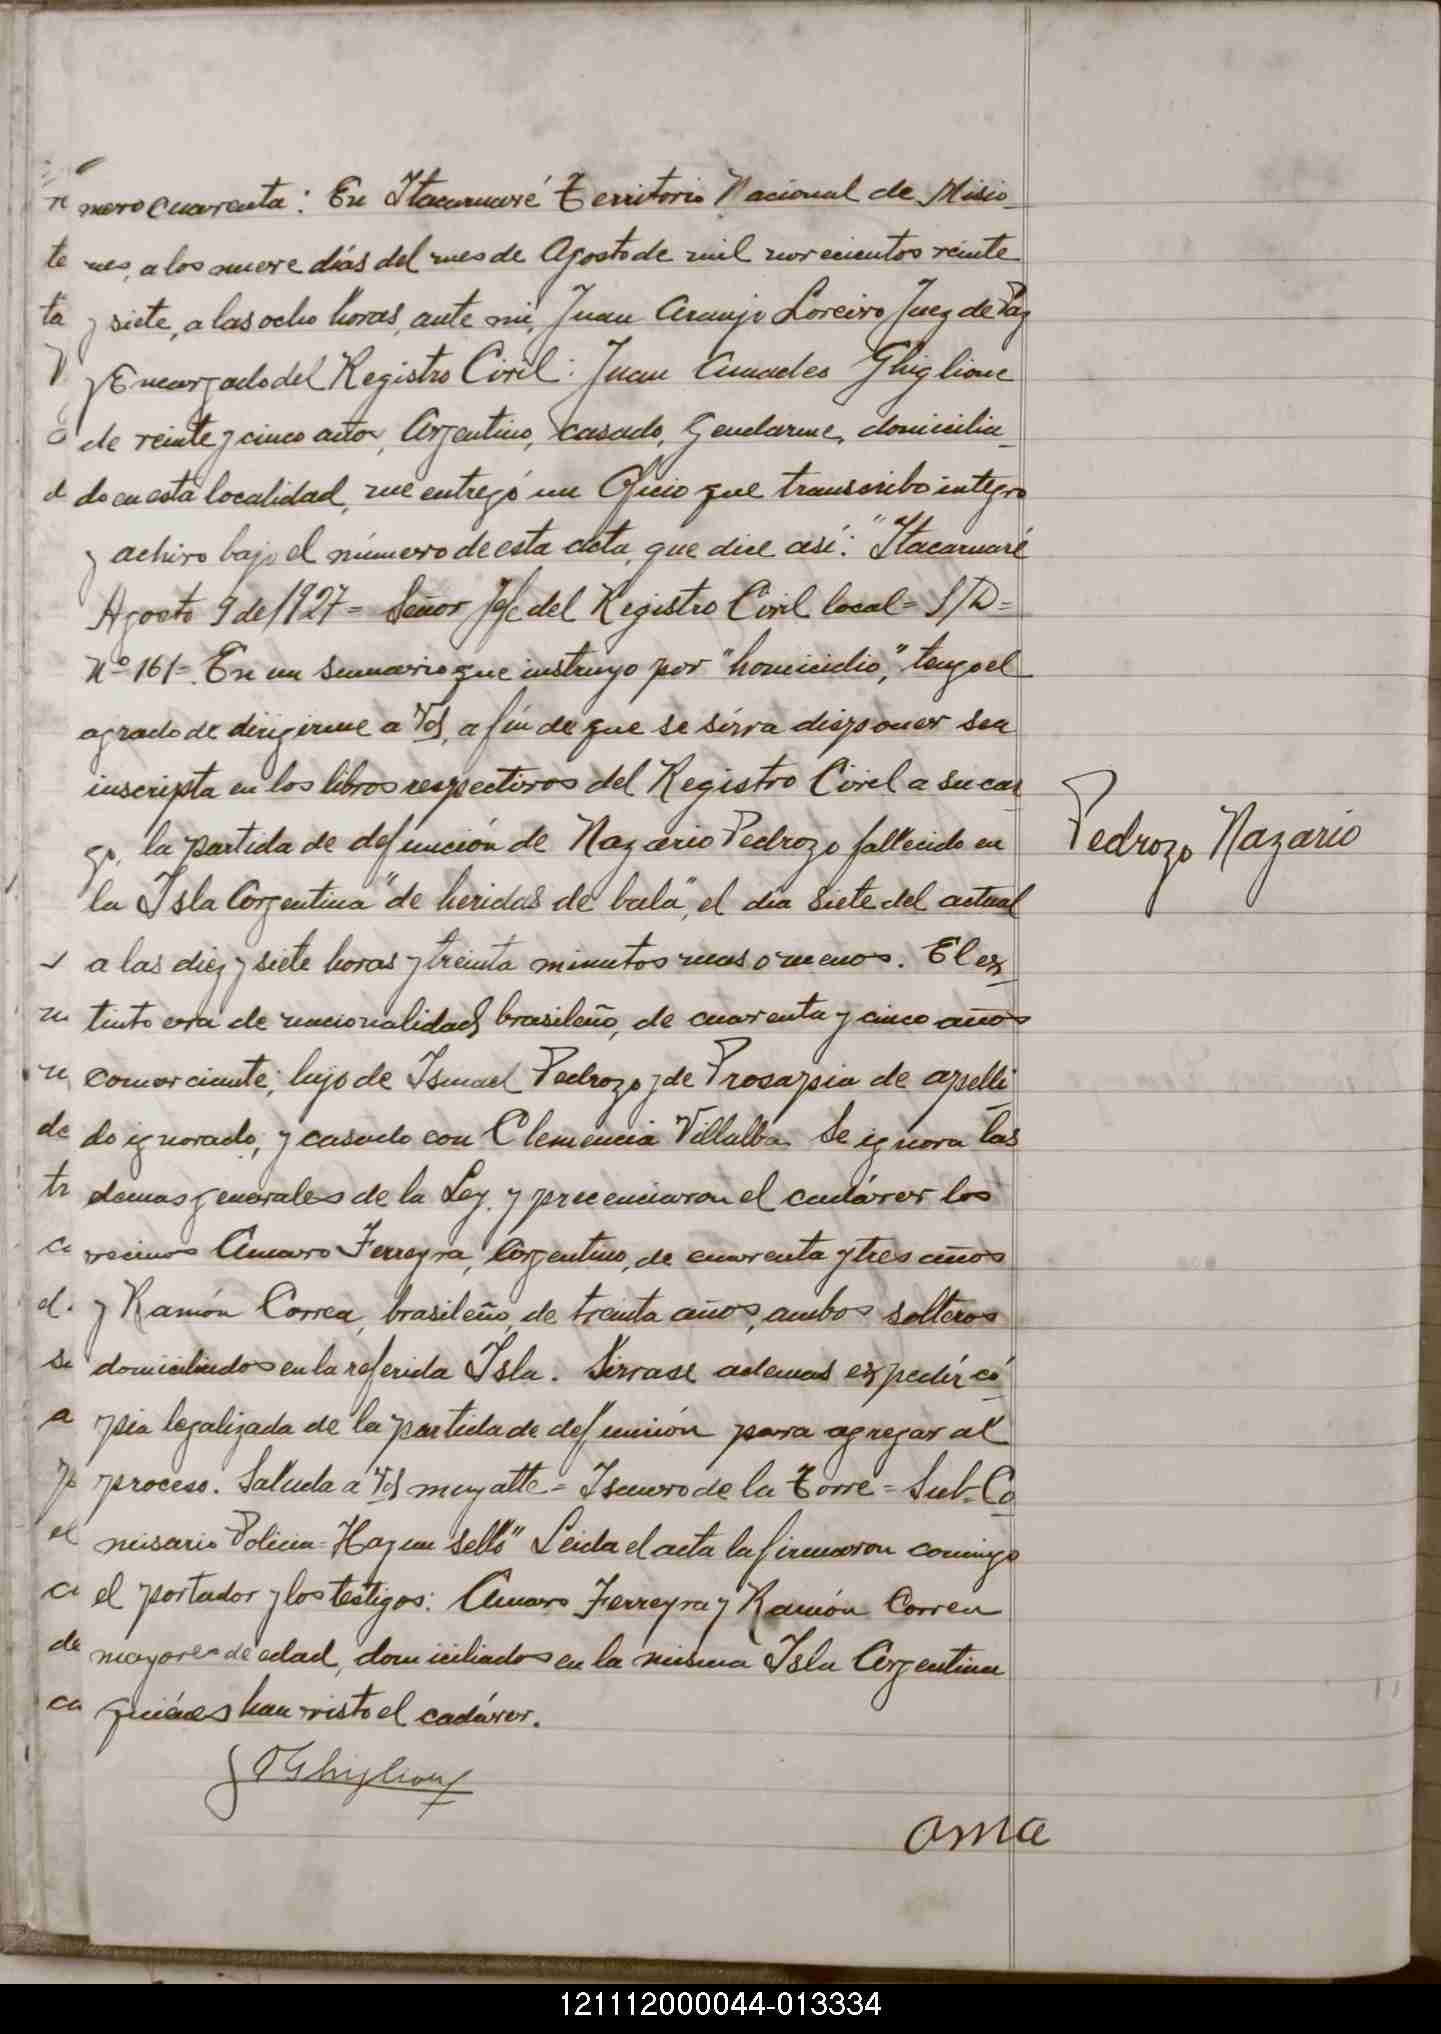 mero cuarenta: En Itacaruaré Territorio Nacional de Misio_
nes, a los nueve días del mes de Agosto de mil novecientos veinte
y siete, a las ocho horas, ante mi, Juan Araujo Loreiro Juez de Paz
y Encargado del Registro Civil: Juan Amadeo Ghiglione
de veinte y cinco años, Argentino, casado, Gendarme, domicilia_
do en esta localidad, me entregó un Oficio que transcribo integro
y achivo bajo el número de esta acta, que dice así: "Itacaruaré
Agosto 9 de 1927 = Señor Jefe del Registro Civil local = S/D =
Nº 161 = En un sumario que instruyo por "homicidio", tengo el
agrado de dirigirme a Vd, a fin de que se sirva disponer sea
inscripta en los libros respectivos del Registro Civil a su car
go, la partida de defunción de Nazario Pedrozo fallecido en
la Isla Argentina "de heridas de bala", el dia siete del actual
a las diez y siete horas y treinta minutos mas o menos. El ex_
tinto era de nacionalidad brasileño, de cuarenta y cinco años
comerciante; hijo de Ismael Pedrozo y de Prosapia de apelli_
do ignorado, y casado con Clemencia Villalba. Se ignora las
demas generales de la Ley. y precenciaron el cadáver los
vecinos Amaro Ferreyra, Argentino, de cuarenta y tres años
y Ramón Correa, brasileño, de treinta años, ambos solteros
domiciliados en la referida Isla. Sirvase ademas expedir có_
pia legalizada de la partida de defunción para agregar al
proceso. Saluda a Vd muy atte = Isauro de la Torre = Sub-Co
misario Policia = Hay un sello" Leida el acta la firmaron comigo
el portador y los testigos: Amaro Ferreyra y Ramón Correa
mayores de edad, domiciliados en la misma Isla Argentina
quiénes han visto el cadáver.
Pedrozo Nazario
J A Ghiglione
ama
121112000044-013334